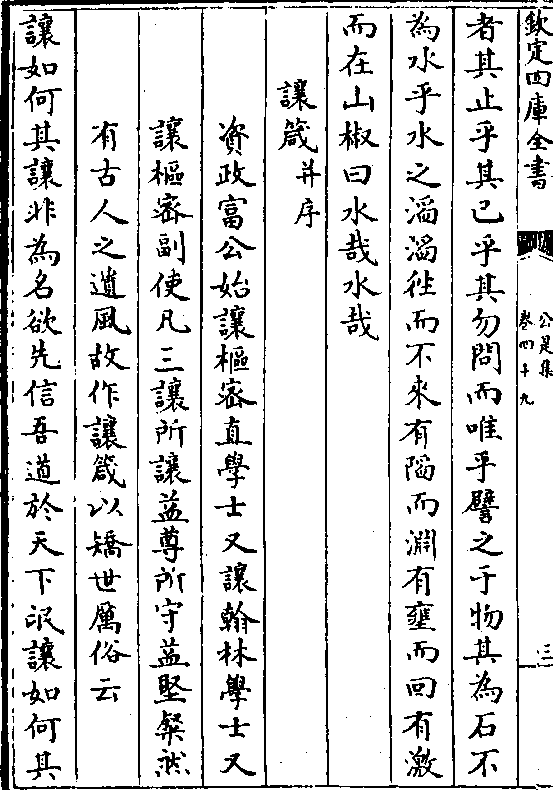 欽定四庫全書
公是集
卷四十九
三
者其止乎其已乎其勿問而唯乎譬之于物其為石不
為水乎水之滔滔徃而不來有陷而淵有壅而回有激
而在山椒曰水哉水哉
讓箴并序
資政富公始讓樞密直學士又讓翰林學士又
讓樞密副使凡三讓所讓益尊所守益堅粲然
有古人之遺風故作讓箴以矯世厲俗云
讓如何其讓非為名欲先信吾道於天下氓讓如何其